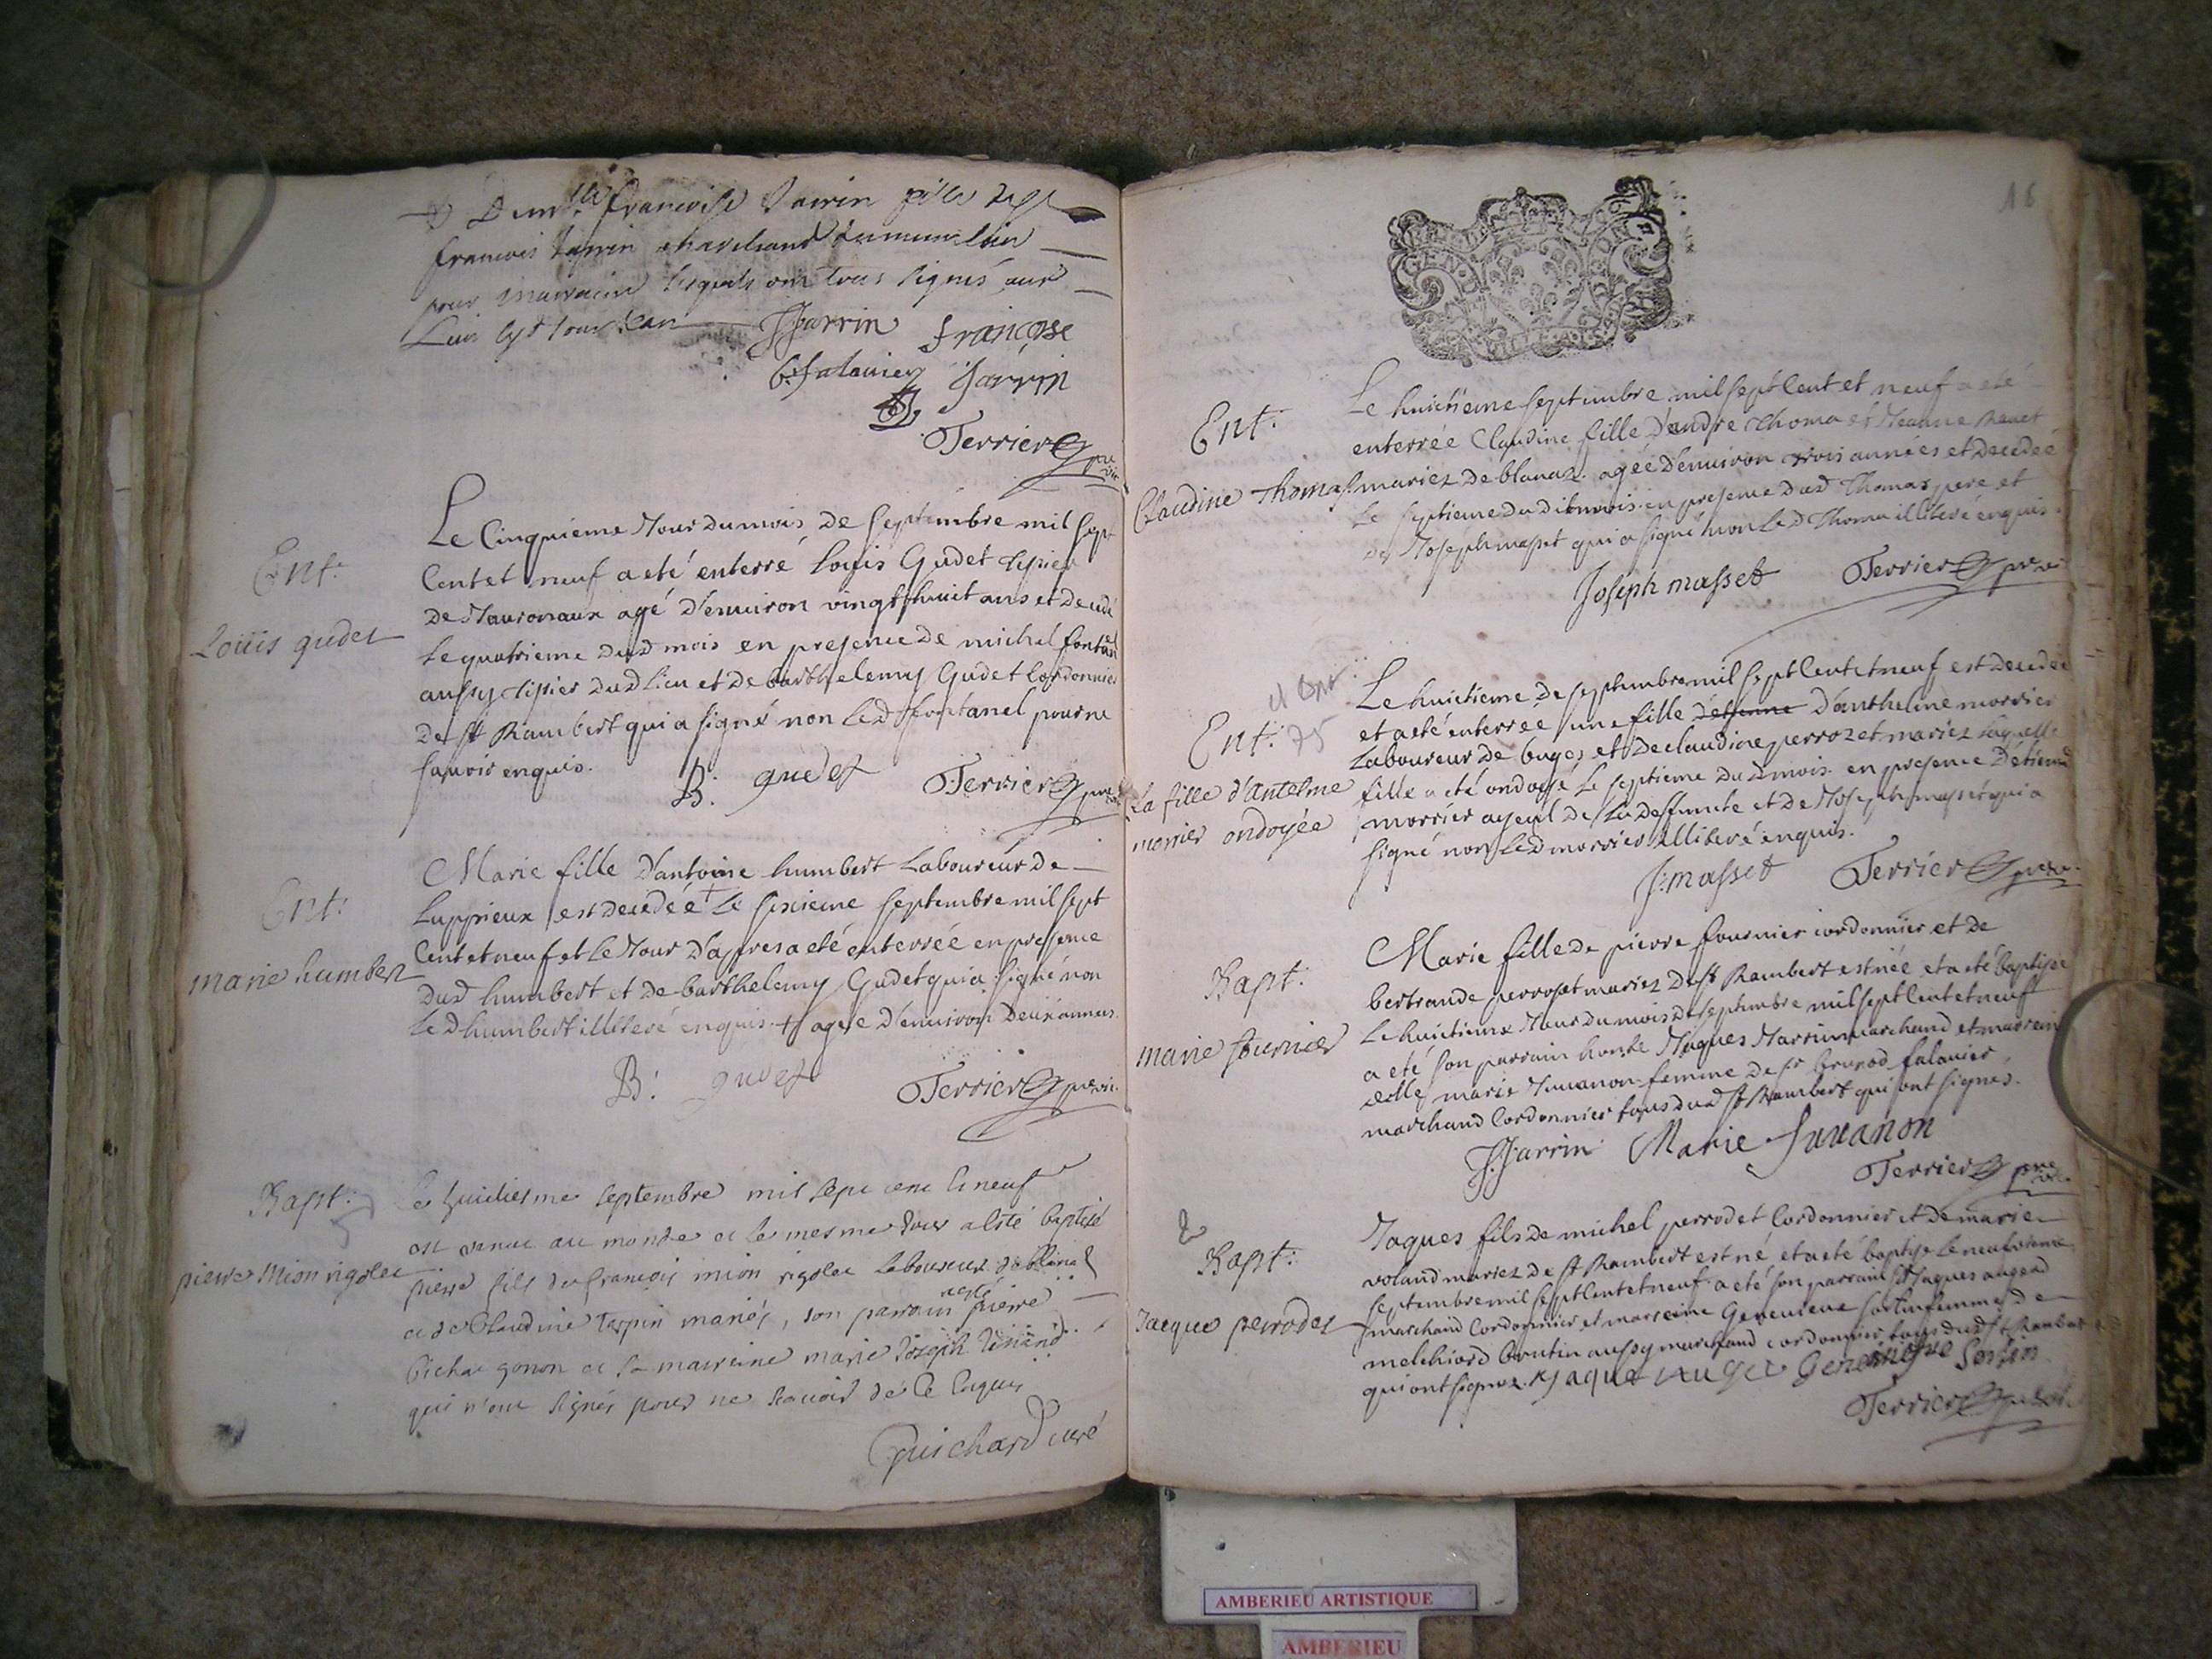 francoise Jarrin fille
francois Jarrin marchand
pour marraine lesquels ont tous signés
JJarrin françoise
Falavier Jarrin
Terrier
Ent:
Louis gudet
Le Cinquieme Jour du mois de septembre mil sept
Cent et neuf a eté enterré Louis Gudet tisier
de agé d'environ vingt huit ans et decedé
Le quatrieme dud mois en presence de michel fontanel
aussy tisier dud lieu et de barthelemy Gudet Cordonnier
De st Rambert qui a signé non Led fontanel pour ne
sçavoir enquis.
B. gudet Terrier
Ent:
marie humbert
Marie fille d'antoine humbert Laboureur de
Luppieux est decedéé + Le sixieme septembre mil sept
Cent et neuf et le Jour d'apres a eté enterrée en presence
dud humbert et de barthelemy Gudet qui a signé non
Led humbert illiteré enquis + agée d'environ deux années.
B: gudet Terrier
Bapt:
pierre Mion rigolet
Le huictiesme septembre mil sept cent et neuf
est venu au monde et le mesme Jour a esté baptisé
pierre fils de francois mion rigolet laboureur de
et de Claudine tarpin mariés, son parrain a esté pierre
gonon et sa marreine marie Joseph
qui n'ont signés pour ne scavoir de ce enquis
Guichard curé
16
GEN
Ent:
Claudine Thomas
Le huictieme septembre mil sept Cent et neuf a eté
enterrée Claudine fille d'andre Thoma et Jeanne
mariez de blanaz agée d'environ trois années et decedée
Le septieme du dit mois en presence dud Thomas pere et
de Joseph masset qui a signé non Led Thoma illiteré enquis.
Joseph masset Terrier
Ent: 75
La fille d'Antelme
morrier ondoyée
Le huictieme de septembre mil sept Cent et neuf est decedée
et a eté enterrée une fille d'anthelme morrier
Laboureur de buges et de claudine perrozet mariez Laquelle
fille a eté ondoyé Le septieme dud mois en presence d'etienne
morrier ayeul de La deffuncte et de Joseph masset qui a
signé non Led morrier illiteré enquis.
J. masset Terrier
Bapt:
marie fournier
Marie fille de pierre fournier cordonnier et de
bertrande perroset mariez de st Rambert est née et a eté baptisée
Le huictieme Jour du mois de septembre mil sept Cent et neuf
a eté son parrain Jaques Jarrin marchand et marreine
marie Juvanon femme de sr falavier
marchand Cordonnier tous dud st Rambert qui ont signés.
JJarrin Marie Juvanon
Terrier
Bapt:
Jacque perrodet
Jaques fils de michel perrodet Cordonnier et de marie
voland mariez de st Rambert est né et a eté baptisé le neuvieme
septembre mil sept Cent et neuf a eté son parrain sr Jaques augerd
marchand Cordonnier et marreine Genevieve sortin femme de
melchiord brutin aussy marchand cordonnier tous dud st Rambert
qui ont signez. Jaque Genevieve Sortin
Terrier
AMBERIEU ARTISTIQUE
AMBERIEU